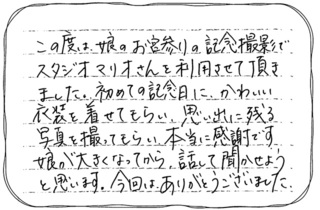 この度は、娘のお宮参りの記念撮影で
スタジオマリオさんを利用させて頂き
ました。初めての記念日に、かわいい
衣装を着せてもらい、思い出に残る
写真を撮ってもらい、本当に感謝です。
娘が大きくなってから、話して聞かせよう
と思います。今回は、ありがとうございました。